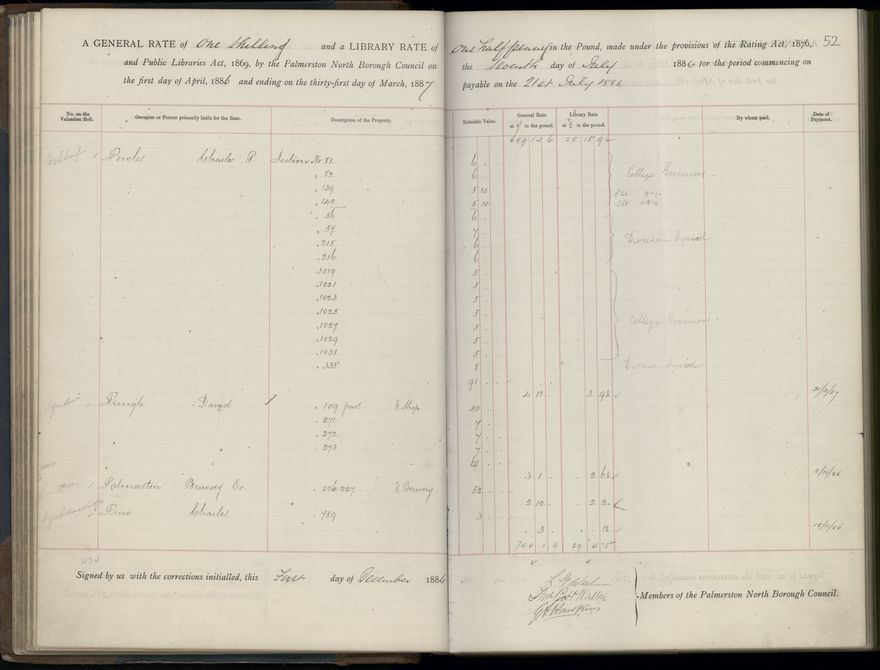 A GENERAL RATE of One Shilling and a LIBRARY RATE of One half penny in the Pound, made under the provisions of the Rating Act, 1876, 52
and Public Libraries Act, 1869, by the Palmerston North Borough Council on the Seventh day of July 1886 for the period commencing on
the first day of April, 1886 and ending on the thirty-first day of March, 1887 payable on the 21st July 1886
No. on the Valuation Roll. Occupier or Person primarily liable for the Rate. Description of the Property. Rateable Value. General Rate at 1/ in the pound. Library Rate at ½ in the pound. By whom paid. Date of Payment.
689 14 6 28 18 9
Charles P. Section No 81 6
" 82 6 College Governors
" 139 5 10
" 140 5 10
" 56 6
" 57 7
" 215 6
" 216 6
" 1019 5
" 1021 5
" 1023 5
" 1025 5
" 1027 5 College Governors
" 1029 5
" 1031 5
" 335 8
91
4 11 3 9½
Pringle David / " 109 part & Shop 40
" 271 7
" 272 7
" 273 7
61
3 1 2 6½ 2/11/86
Palmerston Brewery Co. " 226.227 & Brewery 52
2 12 2 2
Price Charles " 459 3
3 1½ 18/11/86
700 1 6 29 3 5
434
Signed by us with the corrections initialled, this First day of December 1886
Members of the Palmerston North Borough Council.